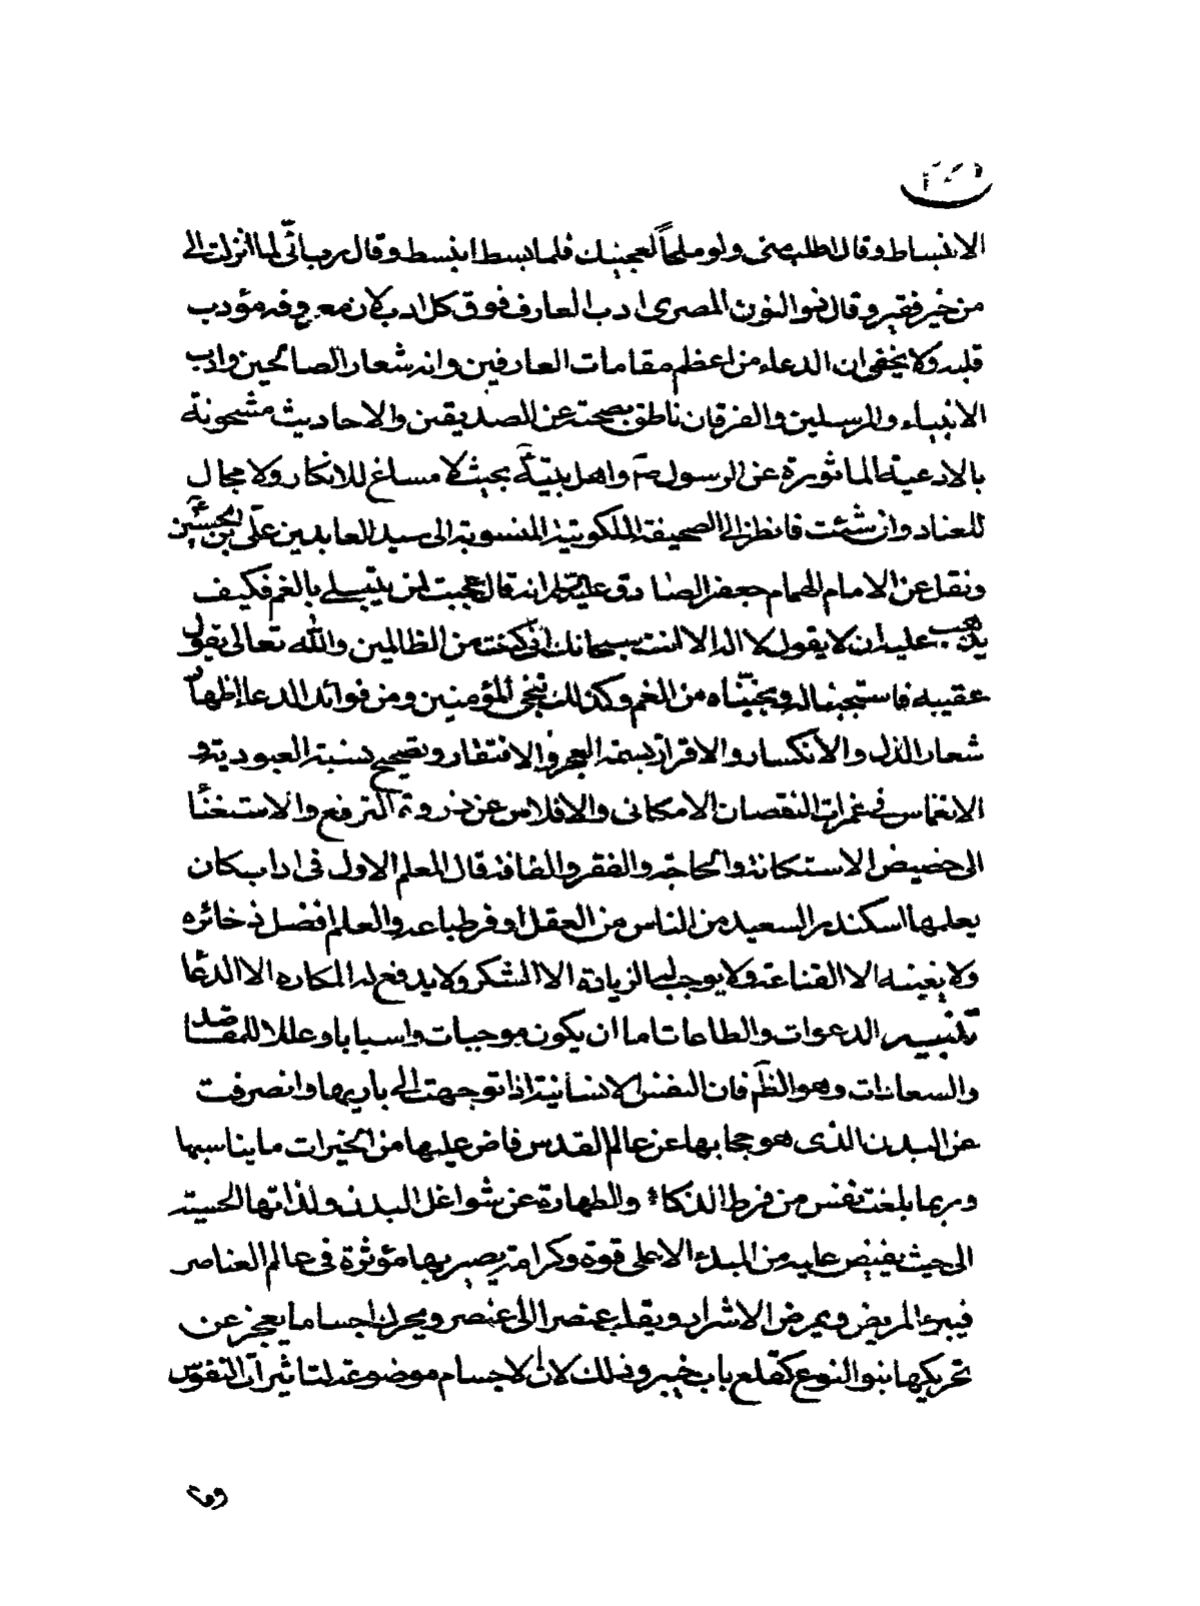 الانبساط وقال اطلب منى ولو ملحاً لعجينك فلما بسط انبسط وقال رب انّى لما انزلت الى
من خير فقير وقال ذو النون المصرى ادب العارف فوق كل ادب لان معروفه مؤدب
قلبه ولا يخفى ان الدعاء من اعظم مقامات العارفين وانه شعار الصالحين وادب
الانبياء والمرسلين والفرقان ناطق بصحته عن الصديقين والاحاديث مشحونة
بالادعية الماثورة عن الرسول صۤ واهل بيته بحيث لا مساغ للانكار ولا مجال
للعناد وان شئت فانظر الى الصحيفة الملكوتية المنسوبة الى سيد العابدين على بن الحسين
ونقل عن الامام الهمام جعفر الصادق عليه انه قال عجبت لمن يبتلى بالغم فكيف
يذهب عليه ان لا يقول لا اله الا انت سبحانك انى كنت من الظالمين والله تعالى يقول
عقيبه فاستجبنا له ونجيّناه من الغم وكذلك ننجى المؤمنين ومن فوائد الدعا اظهار
شعار الذل والانكسار والاقرار بسمة العجز والافتقار وتصحيح نسبة العبودية و
الانغماس فى غمرات النقصان الامكانى والافلاس عن ذروة الترفع والاستغنا
الى حضيض الاستكانة والحاجة والفقر والفاقة قال المعلم الاول فى اداب كان
يعلمها اسكندر السعيد من الناس من العقل اوفر طباعه والعلم افضل ذخائره
ولا يغنيه الا القناعة ولا يوجب له الزيادة الا الشكر ولا يدفع له المكاره الا الدعا
تنبيه الدعوات والطاعات اما ان يكون موجبات واسبابا وعللا للمقاصد
والسعادات وهو الظۤ فان النفس الانسانية اذا توجهت الى باريها وانصرفت
عن البدن الذى هو حجابها عن عالم القدس فاض عليها من الخيرات ما يناسبها
وربما بلغت نفس من فرط الذكاء والطهارة عن شواغل البدن ولذاتها الحسية
الى حيث يفيض عليه من المبدء الاعلى قوة وكرامة يصير بها مؤثرة فى عالم العناصر
فيبرء المريض ويمرض الاشرار ويقلب عنصرا الى عنصر ويحرك اجساما يعجز عن
تحريكها بنو النوع كقلع باب خيبر وذلك لان الاجسام موضوعة لتاثيرات النفوس